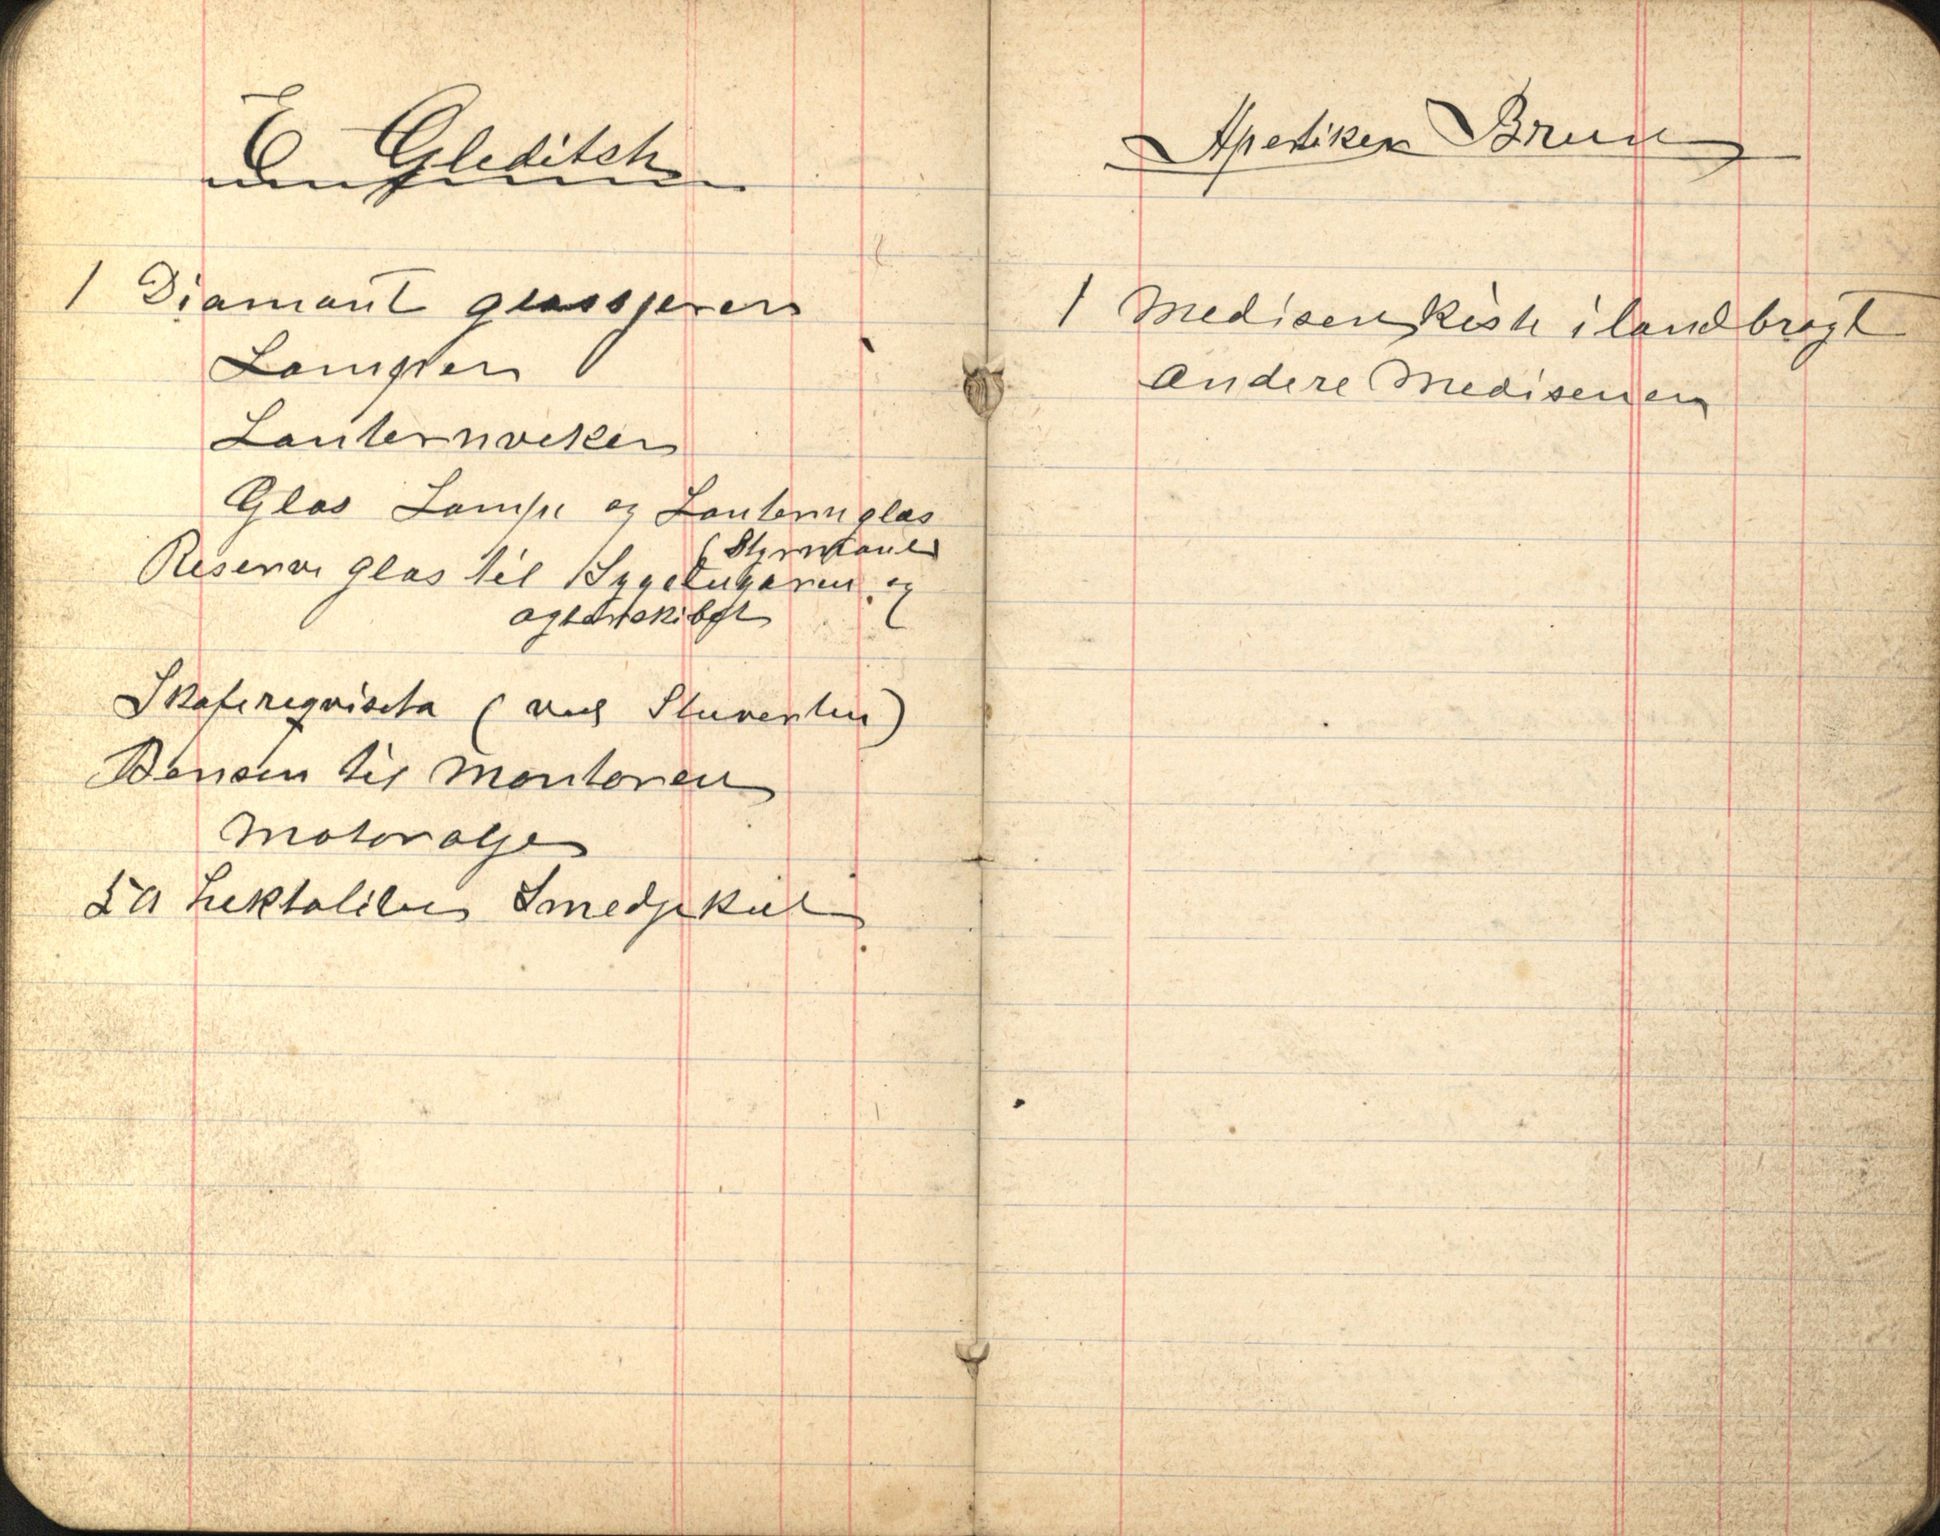 E Gleditsh
1 Diamant glassjerer
Lamper
Lanternveker
Glas Lampe og Lanternglas
(Styrmand
Reserve glas til Sygelugaren og
agterskibet
Skaferegvisita (ved Stuerten)
Bensin til Montoren
Motorolje
50 hektoliter Smedjekul
Apotiker Brun
1 Medisenkiste ilandbragt
Andere Medisener